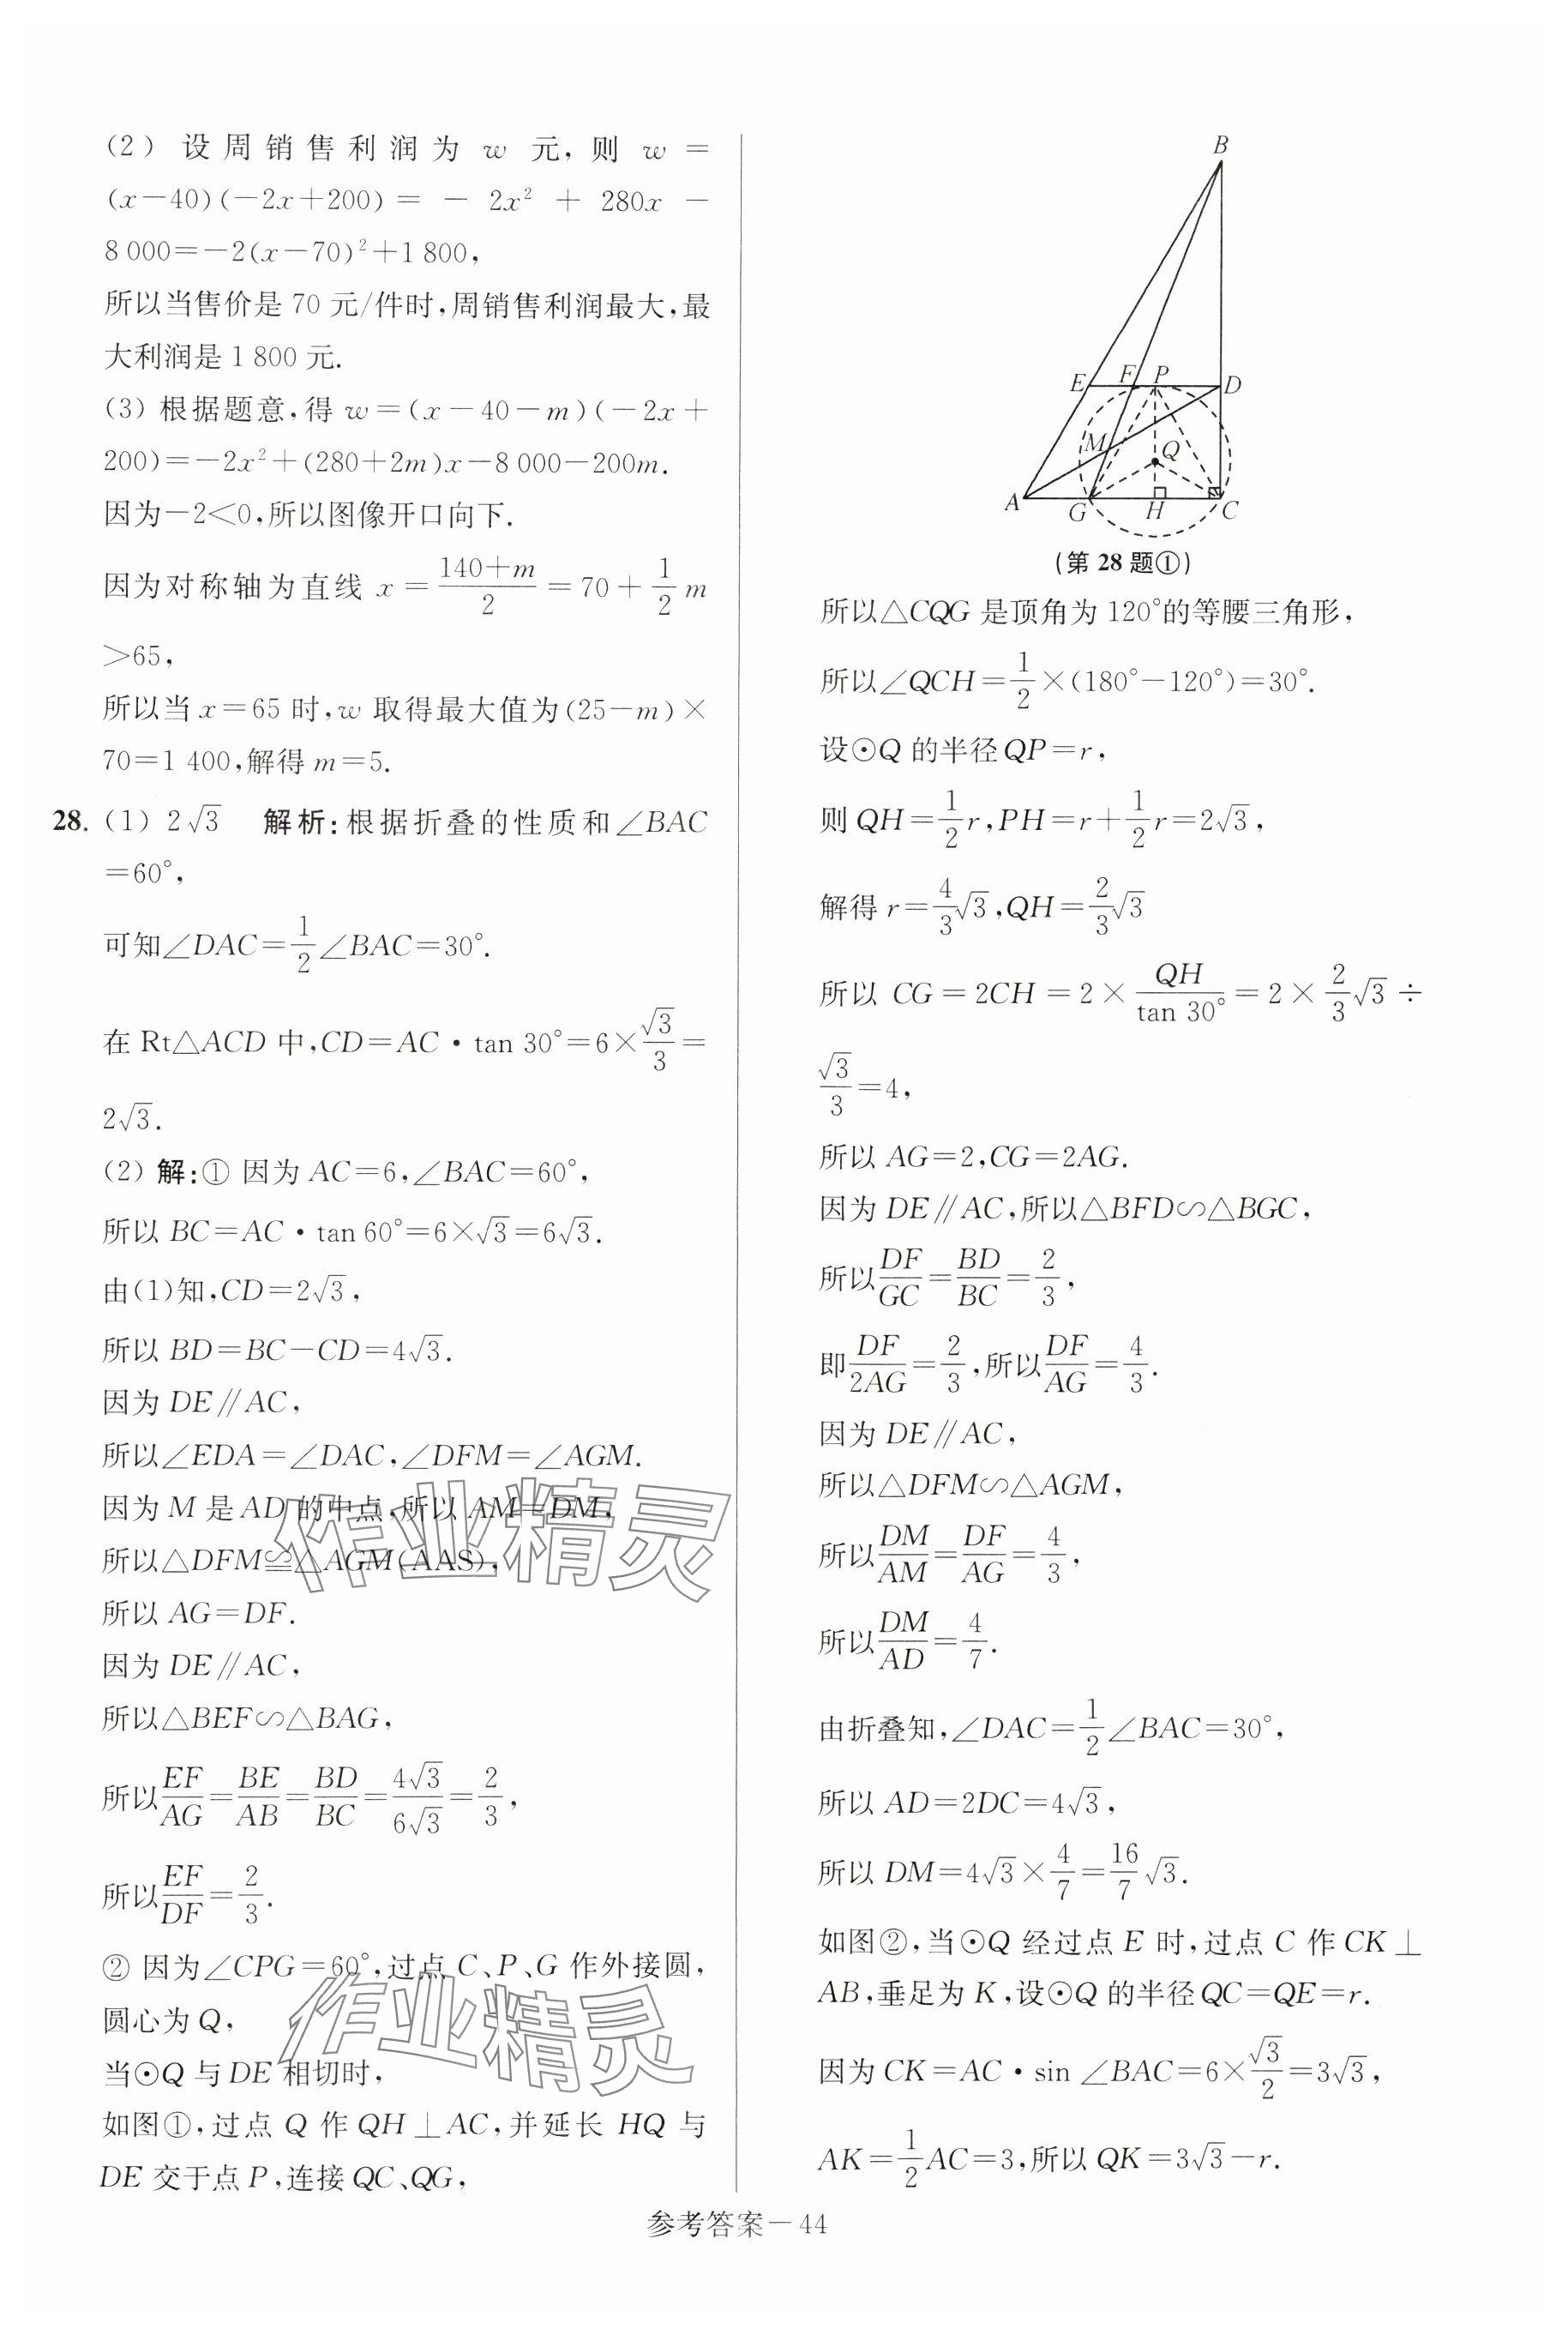 (2) 设周销售利润为 w 元,则 w=
(x-40)(-2x+200) = - 2x² + 280x -
8 000=-2(x-70)²+1 800,
所以当售价是 70 元/件时,周销售利润最大,最
大利润是 1 800 元.
(3) 根据题意,得 w=(x-40-m)(-2x+
200)=-2x²+(280+2m)x-8 000-200m.
因为-2<0,所以图像开口向下.
因为对称轴为直线 x=\frac{140+m}{2}=70+\frac{1}{2}m
>65,
所以当 x=65 时,w 取得最大值为(25-m)×
70=1 400,解得 m=5.
28. (1) 2√3 解析:根据折叠的性质和∠BAC
=60°,
可知∠DAC=\frac{1}{2}∠BAC=30°.
在 Rt△ACD 中,CD=AC·tan 30°=6×\frac{√3}{3}=
2√3.
(2) 解:① 因为 AC=6,∠BAC=60°,
所以 BC=AC·tan 60°=6×√3=6√3.
由(1)知,CD=2√3,
所以 BD=BC-CD=4√3.
因为 DE∥AC,
所以∠EDA=∠DAC,∠DFM=∠AGM.
因为 M 是 AD 的中点,所以 AM=DM,
所以△DFM≌△AGM(AAS),
所以 AG=DF.
因为 DE∥AC,
所以△BEF∽△BAG,
所以\frac{EF}{AG}=\frac{BE}{AB}=\frac{BD}{BC}=\frac{4√3}{6√3}=\frac{2}{3},
所以\frac{EF}{DF}=\frac{2}{3}.
② 因为∠CPG=60°,过点 C、P、G 作外接圆,
圆心为 Q,
当⊙Q 与 DE 相切时,
如图①,过点 Q 作 QH⊥AC,并延长 HQ 与
DE 交于点 P,连接 QC、QG,
作业精灵
作业精灵
B
E F P D
M Q
A G H C
(第 28 题①)
所以△CQG 是顶角为 120°的等腰三角形,
所以∠QCH=\frac{1}{2}×(180°-120°)=30°.
设⊙Q 的半径 QP=r,
则 QH=\frac{1}{2}r,PH=r+\frac{1}{2}r=2√3,
解得 r=\frac{4}{3}√3,QH=\frac{2}{3}√3
所以 CG=2CH=2×\frac{QH}{tan 30°}=2×\frac{2}{3}√3÷
\frac{√3}{3}=4,
所以 AG=2,CG=2AG.
因为 DE∥AC,所以△BFD∽△BGC,
所以\frac{DF}{GC}=\frac{BD}{BC}=\frac{2}{3},
即\frac{DF}{2AG}=\frac{2}{3},所以\frac{DF}{AG}=\frac{4}{3}.
因为 DE∥AC,
所以△DFM∽△AGM,
所以\frac{DM}{AM}=\frac{DF}{AG}=\frac{4}{3},
所以\frac{DM}{AD}=\frac{4}{7}.
由折叠知,∠DAC=\frac{1}{2}∠BAC=30°,
所以 AD=2DC=4√3,
所以 DM=4√3×\frac{4}{7}=\frac{16}{7}√3.
如图②,当⊙Q 经过点 E 时,过点 C 作 CK⊥
AB,垂足为 K,设⊙Q 的半径 QC=QE=r.
因为 CK=AC·sin ∠BAC=6×\frac{√3}{2}=3√3,
AK=\frac{1}{2}AC=3,所以 QK=3√3-r.
参考答案-44